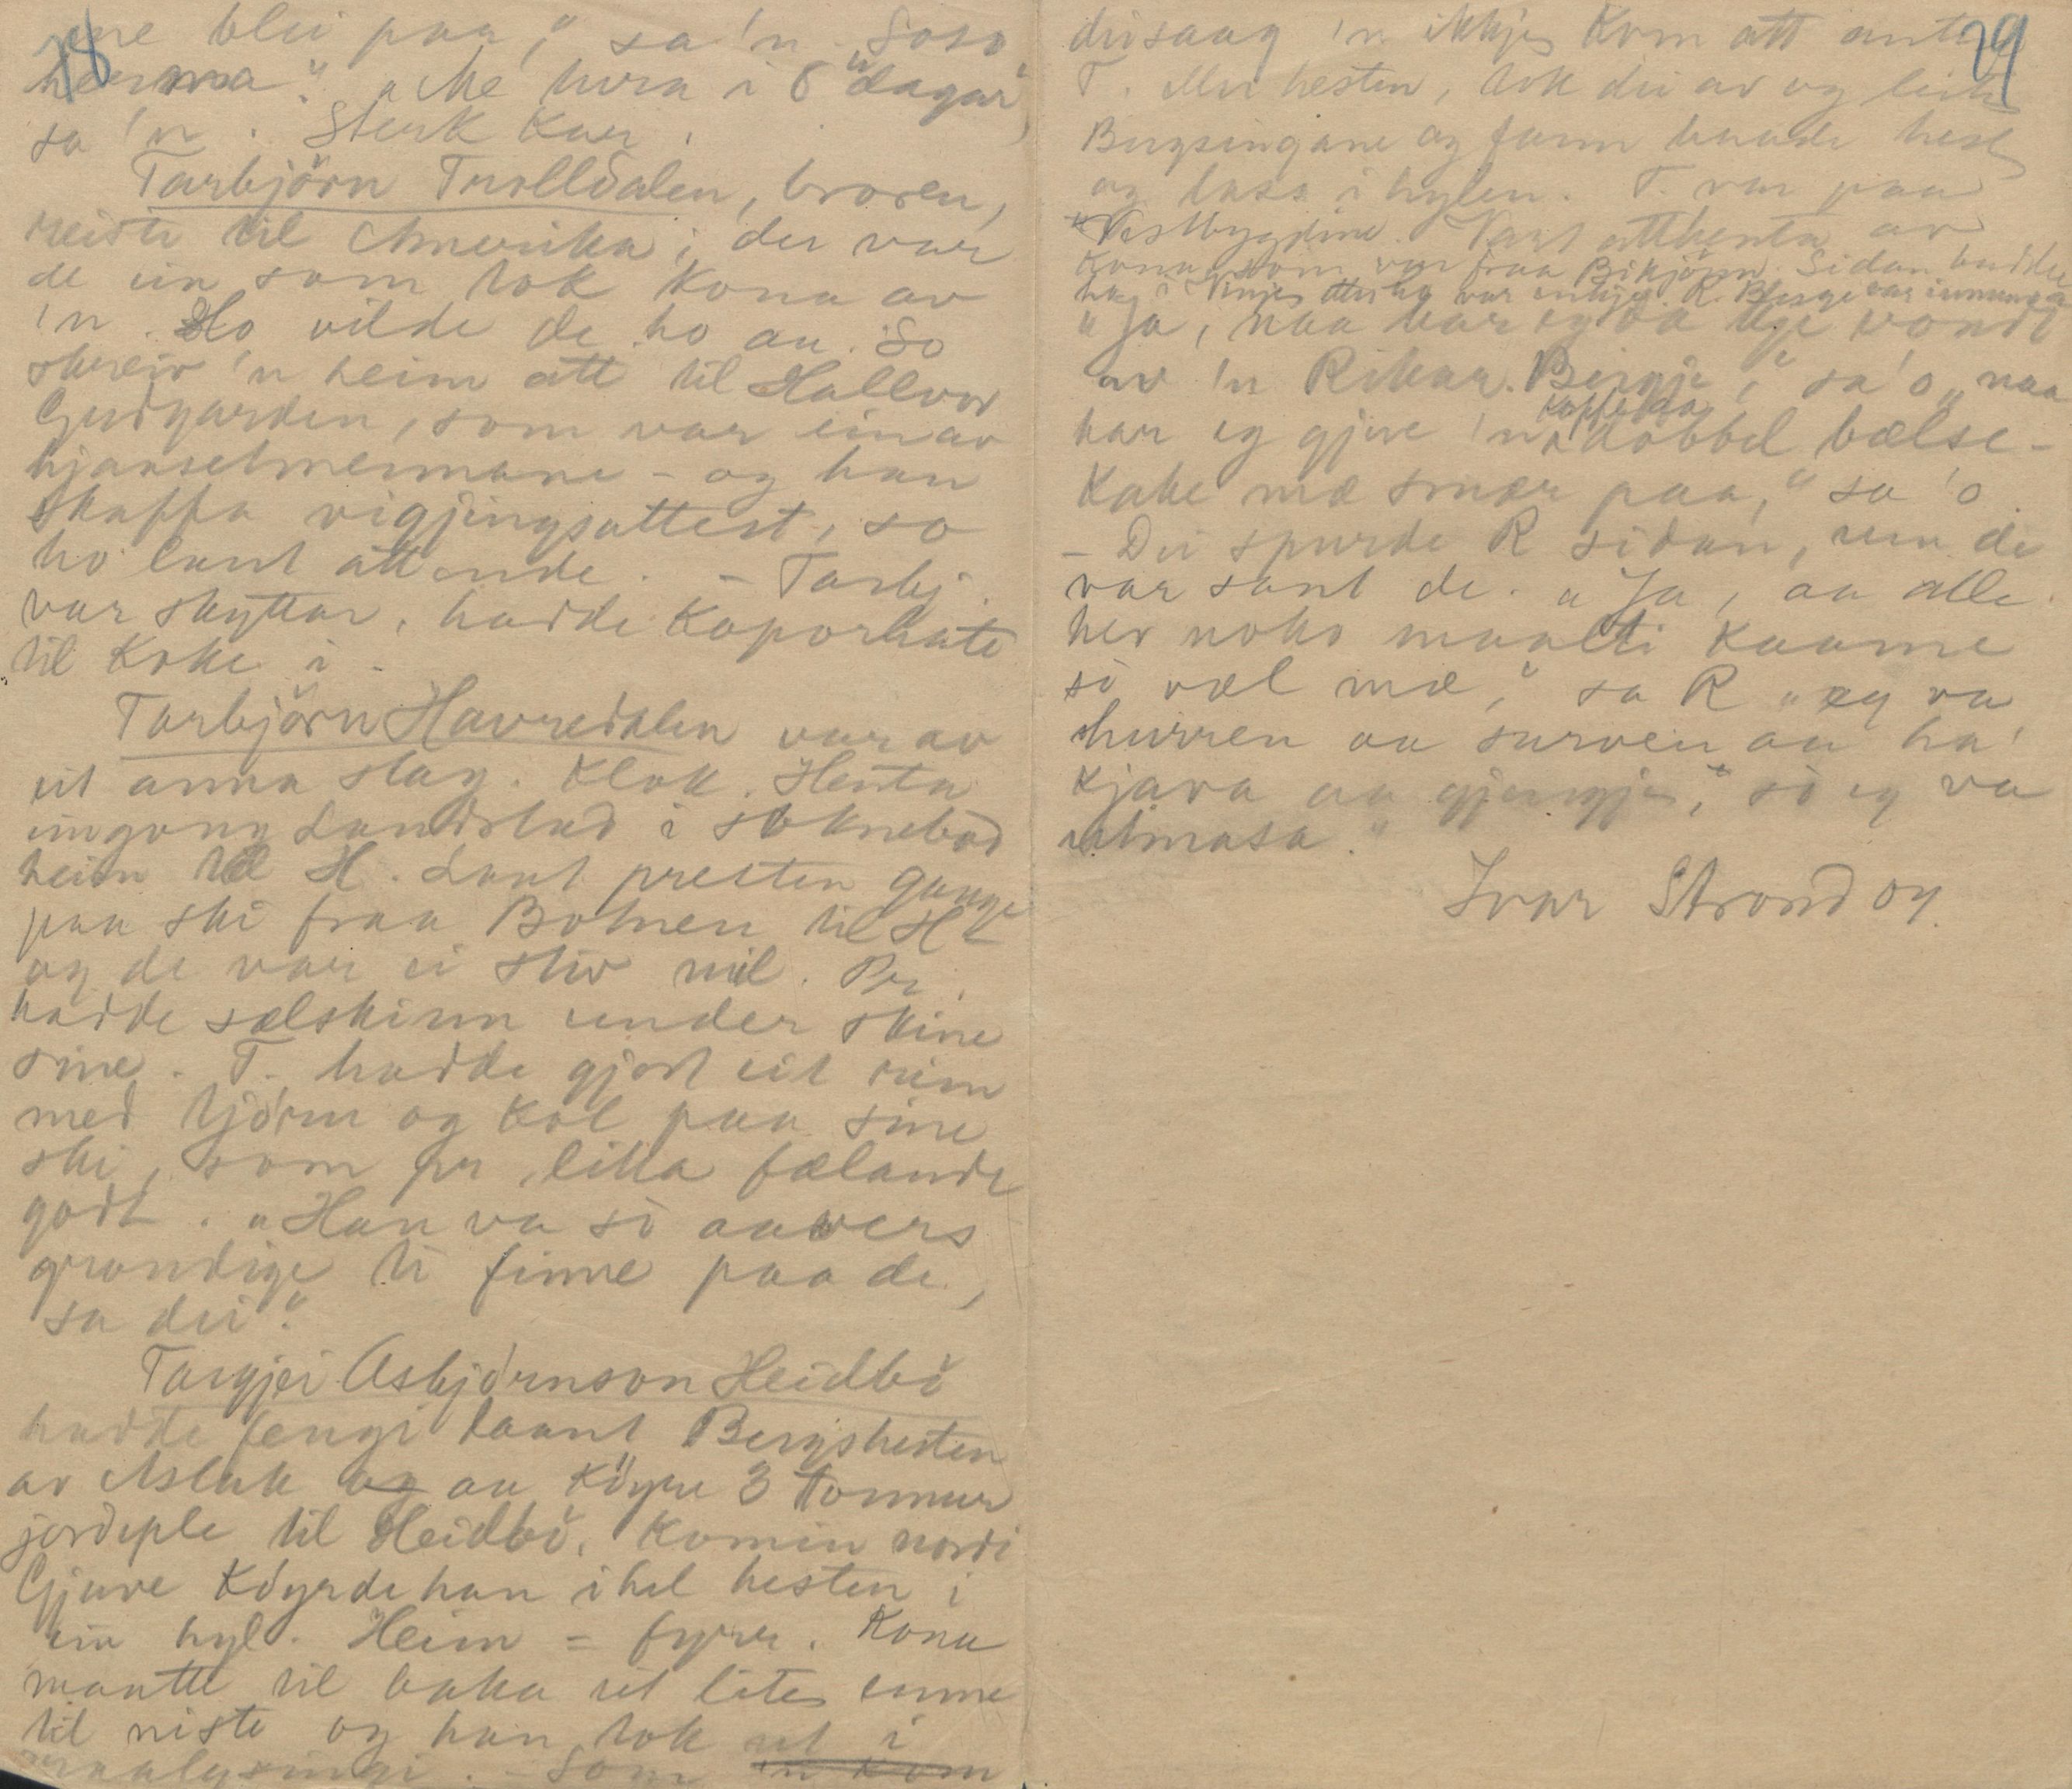 78
ene blei paa," sa 'n. Soso
heima." "Me tura i 8 dagar"
sa 'n. Sterk Kar.
Tarbjörn Trolldalen, broren,
reiste til Amerika; der var
de ein som tok kona av
'n. Ho vilde de ho au. So
skreiv 'n heim att til Hallvor
Gudgarden, som var ein av
kjanselmennane - og han
skaffa vigjingsattest, so
ho laut attende. - Tarbj.
var skyttar, hadde Koparhatt
til Koke i.
Tarbjörn Havredalen var av
eit anna slag. Klok. Henta
eingong Landstad i soknebod
heim til H. Laut presten gange
paa ski fraa Botnen til H
og de var ei stiv mil. Pr.
hadde sælskinn under skine
sine. T. hadde gjort eit rim
med tjörur og Kol paa sine
ski, som pr. lika fælande
godt. "Han va so aavers
grondige ti finne paa de,
sa dei."
Targjei Asbjörnson Heidbö
hadde fengi laant Bergshesten
av Aslak og aa Köyre 3 tonnur
jordeple til Heidbö. Komin nordi
Gjuve Köyrde han ihel hesten i
ein hyl. Heim = fyrr. Kona
maatte til baka eit lite emne
til niste og han tok ut i
maalysingi. - Som 'n kom
79
dei saag 'n ikkje Kom att anten
T. eller hesten, tok dei av og leita
Bergsingane og fann baade hest
og lass i hylen. T. var paa
Vestbygdine. Vart atthenta av
Kona som var fraa Bikjörn. Sidan budde
"Ja, naa har eg da lige vondt
av 'n Rikar. Bergje," sa 'o, "naa
har eg gjeve 'n Kaffe paa dobbel bælse-
Kake mæ smör paa," sa 'o.
- Dei spurde R sidan, um de
var sant de. "Ja, aa alle
hev noko maalti kaame
so væl mæ," sa R "eg va
turren aa surven aa ha'
Kjava aa gjengje, so eg va
utmasa."
Ivar Strond og.